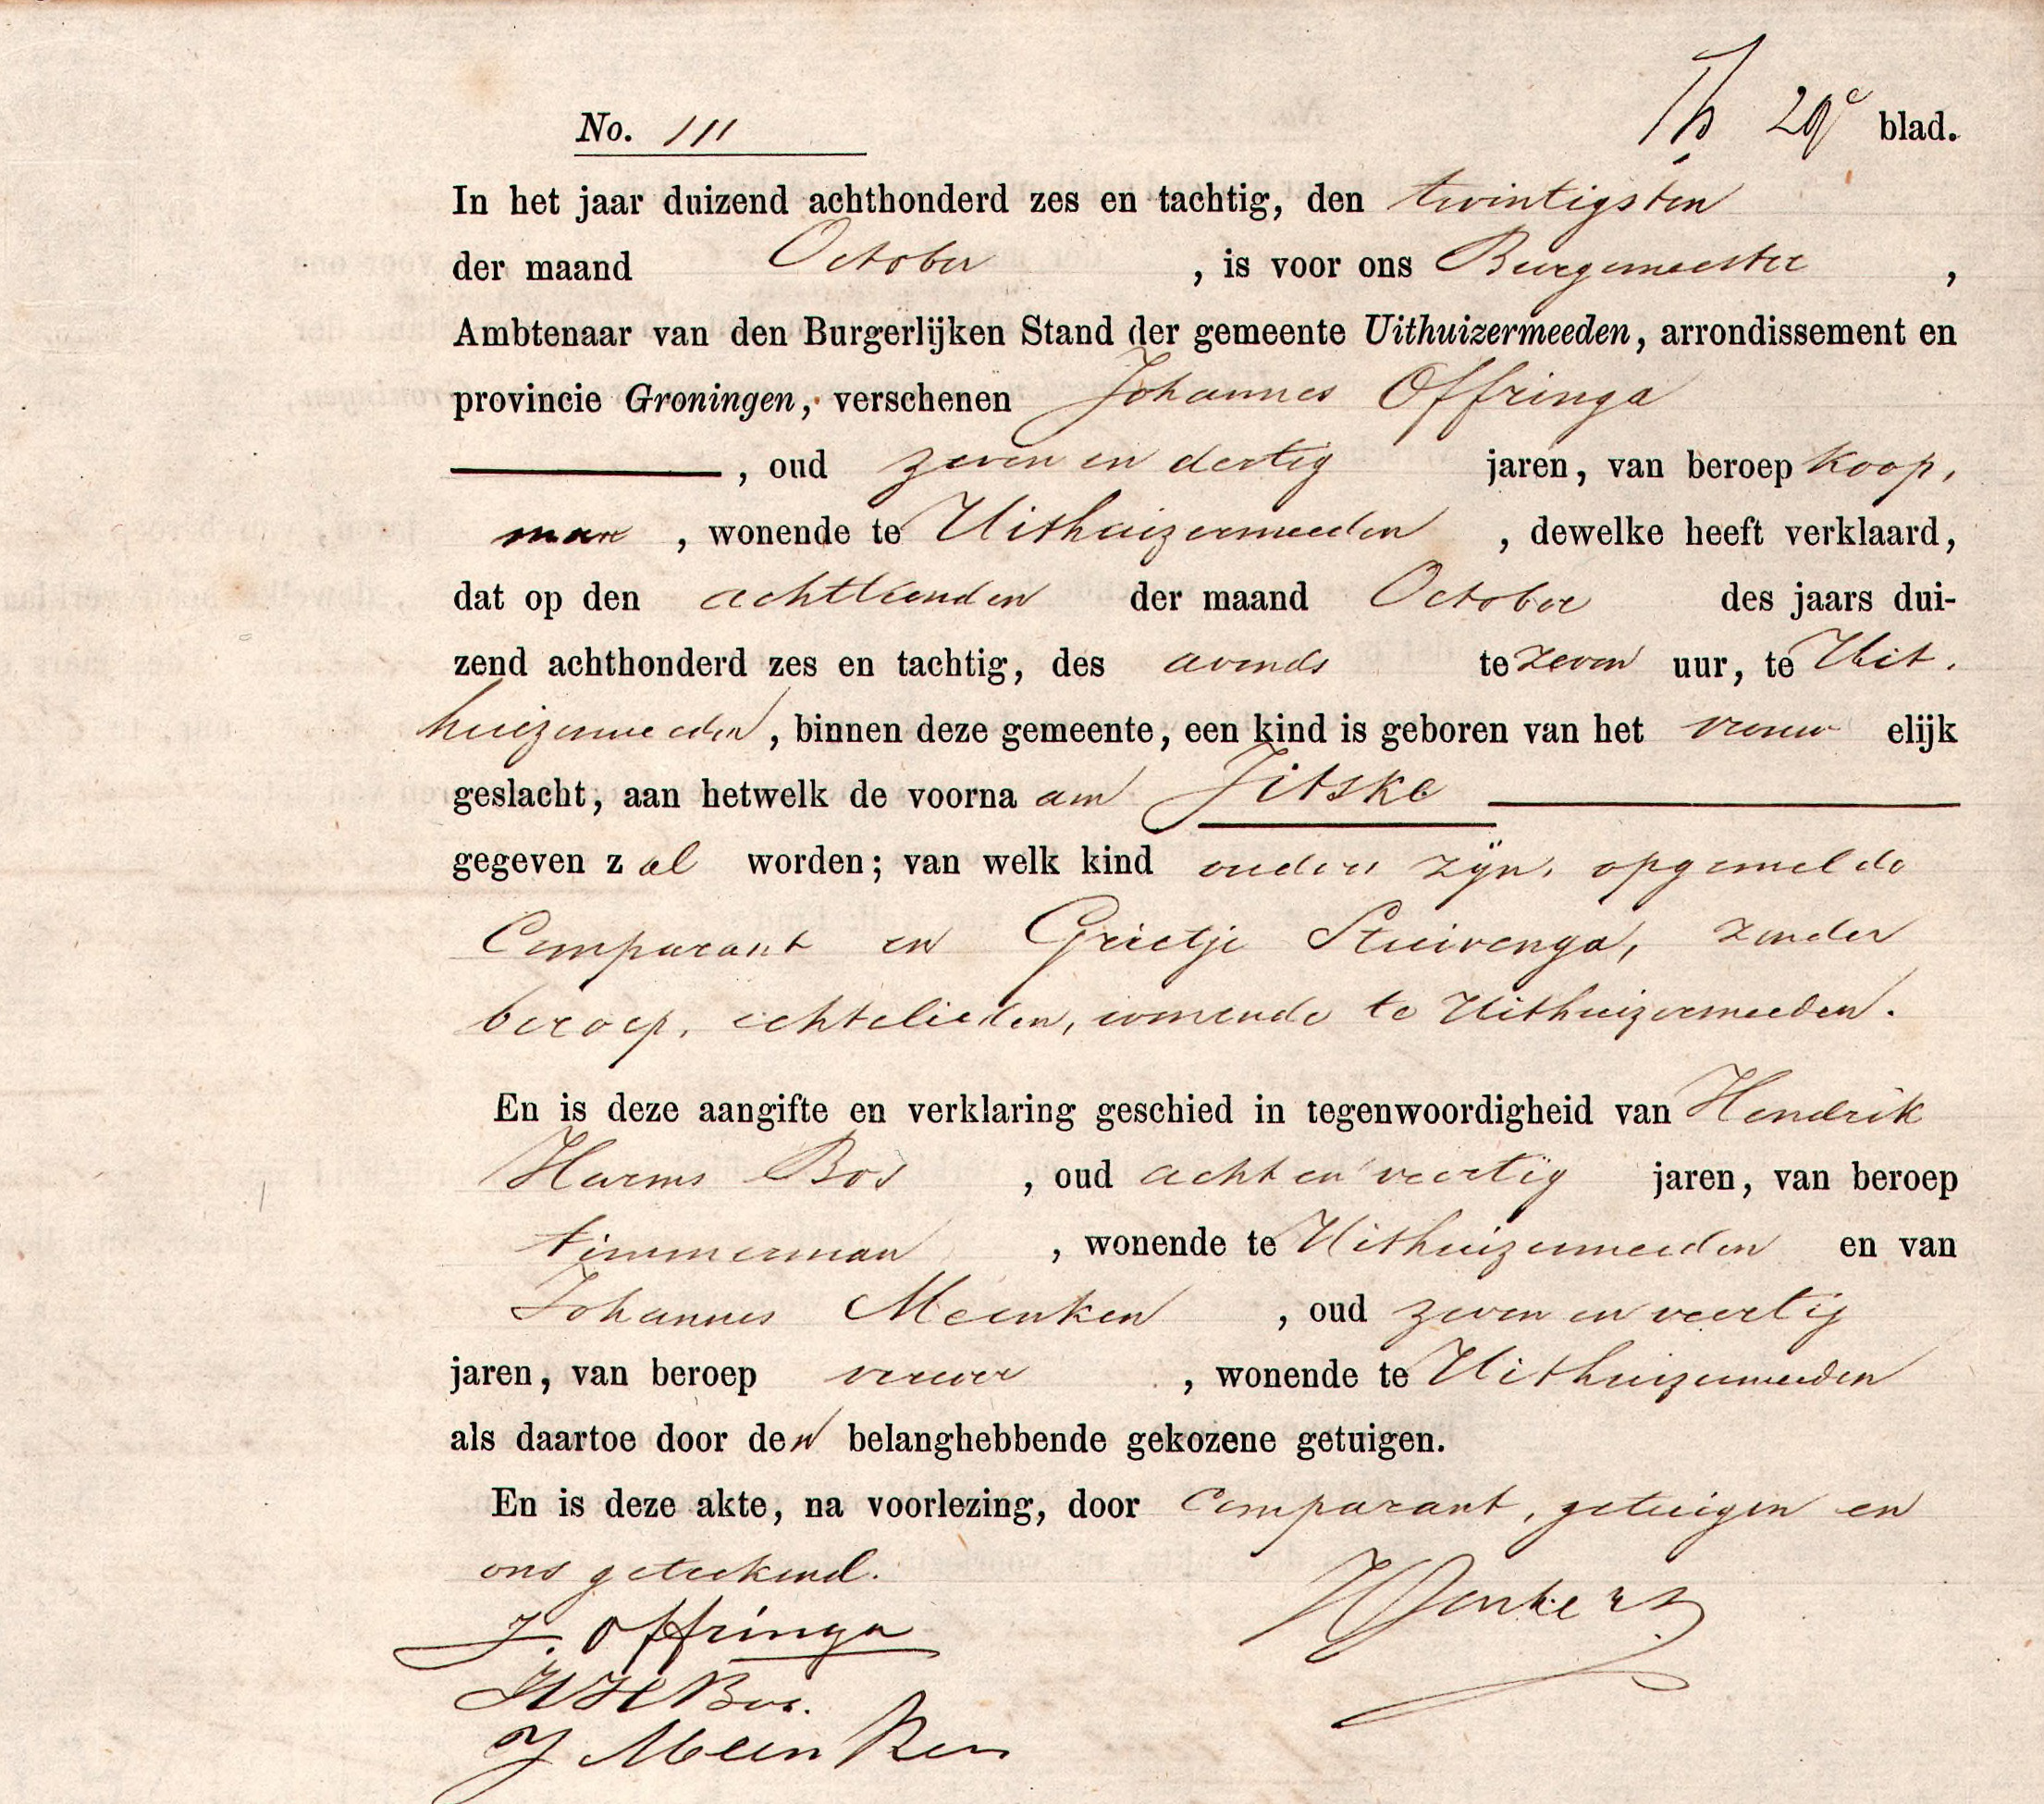 No. 111 29e blad.
In het jaar duizend achthonderd zes en tachtig, den twintigsten
der maand October , is voor ons Burgemeester ,
Ambtenaar van den Burgerlijken Stand der gemeente Uithuizermeeden, arrondissement en
provincie Groningen, verschenen Johannes Offringa
, oud zeven en dertig jaren, van beroep koop,
man , wonende te Uithuizermeeden , dewelke heeft verklaard,
dat op den achttienden der maand October des jaars dui-
zend achthonderd zes en tachtig, des avonds te zeven uur, te Uit,
huizermeeden, binnen deze gemeente, een kind is geboren van het vrouw elijk
geslacht, aan hetwelk de voorna am Jitske
gegeven z al worden; van welk kind ouders zijn, opgemelde
Comparant en Grietje Stuivenga, zonder
beroep, echtelieden, wonende te Uithuizermeeden.
En is deze aangifte en verklaring geschied in tegenwoordigheid van Hendrik
Harms Bos , oud acht en veertig jaren, van beroep
timmerman , wonende te Uithuizermeeden en van
Johannes Meinken , oud zeven en veertig
jaren, van beroep verwer , wonende te Uithuizermeeden
als daartoe door den belanghebbende gekozene getuigen.
En is deze akte, na voorlezing, door Comparant, getuigen en
ons geteekend.
J. Offringa
HH Bos.
J Meinken